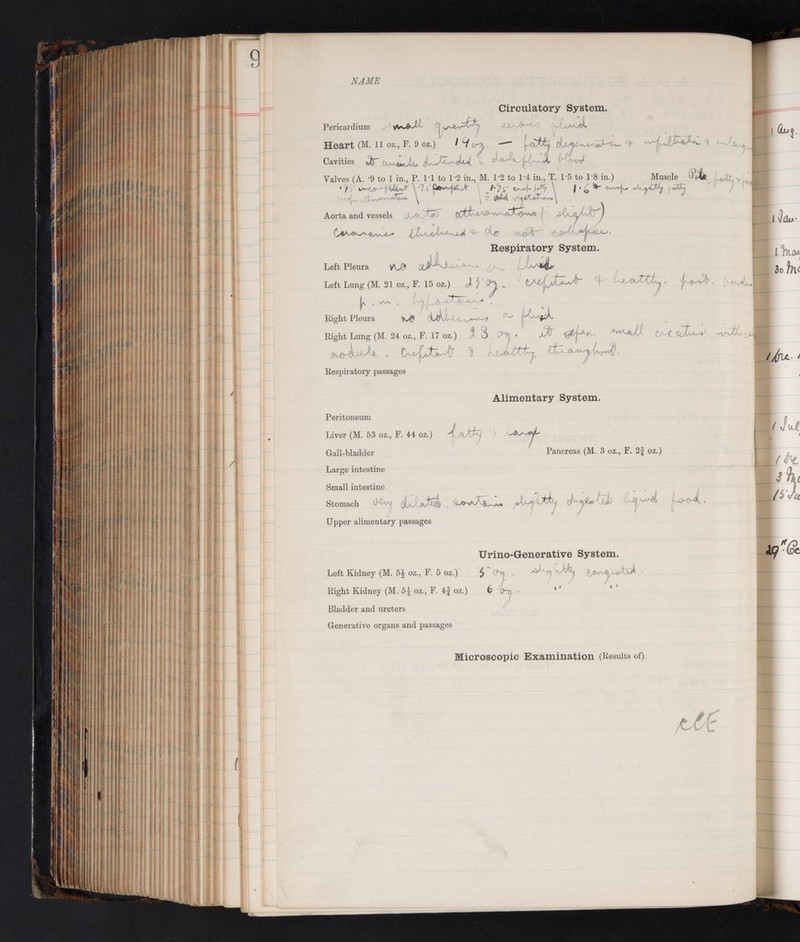 9
NAME
Circulatory System.
Pericardium small quantity serous fluid
Heart (M. 11 oz., F. 9 oz.) 19 oz. — fatty degeneration & infiltration &
Cavities rt auricle distended c dark fluid blood
Valves (A. ·9 to 1 in., P. 1·1 to 1·2 in., M. 1·2 to 1·4 in., T. 1·5 to 1·8 in.) Muscle Pale, fatty
incompetent competent slightly fatty
vegetations
Aorta and vessels aorta atheromatous (slight)
Coronaries thickened & do not collapse.
Respiratory System.
Left Pleura no adhesions or fluid
Left Lung (M. 21 oz., F. 15 oz.) 25 oz. crepitant & healthy. post.
p.m. hypostasis.
Right Pleura no adhesions or fluid
Right Lung (M. 24 oz., F. 17 oz.) 23 oz. rt apex small cicatrix with
nodule. Crepitant & healthy throughout.
Respiratory passages
Alimentary System.
Peritoneum
Liver (M. 53 oz., F. 44 oz.) fatty & large
Gall-bladder Pancreas (M. 3 oz., F. 2¾ oz.)
Large intestine
Small intestine
Stomach very dilated. contains slightly digested liquid food.
Upper alimentary passages
Urino-Generative System.
Left Kidney (M. 5½ oz., F. 5 oz.) 5 oz. slightly congested.
Right Kidney (M. 5¼ oz., F. 4¾ oz.) 6 oz. " "
Bladder and ureters
Generative organs and passages
Microscopic Examination (Results of).
1 Aug.
1 Jan.
1 May